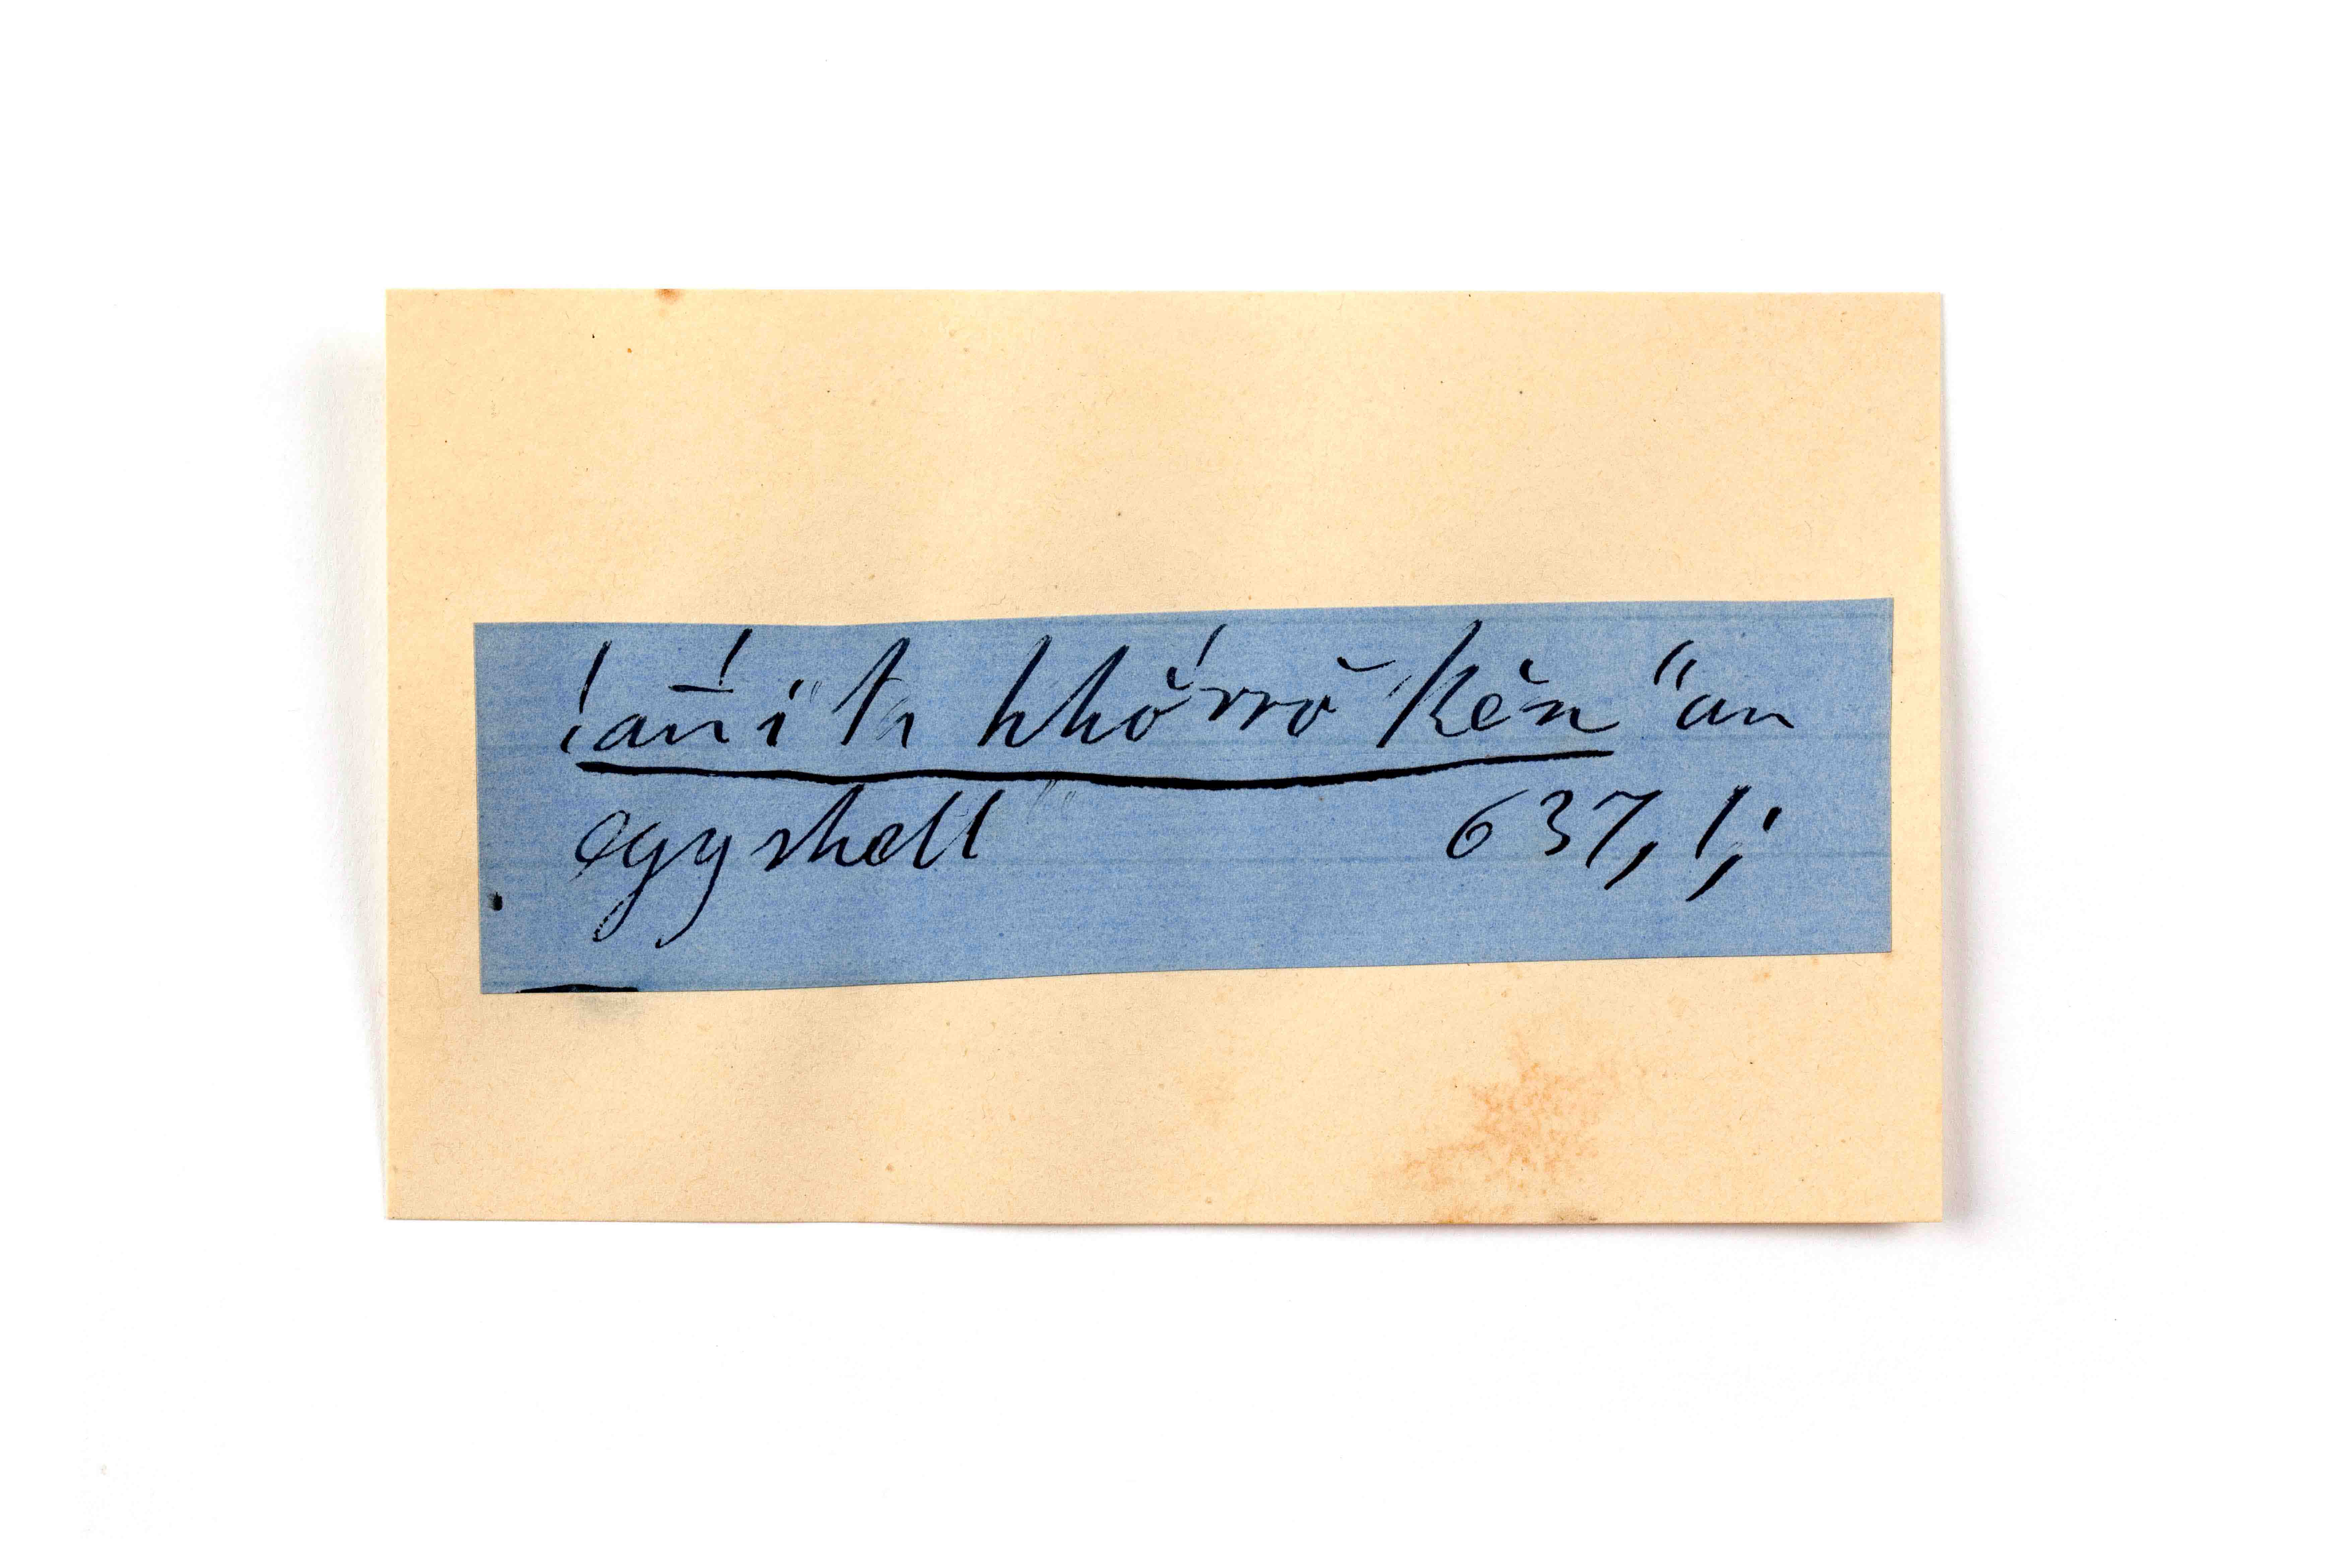 !ăn̄i ta hhŏrrŏ /kĕn "an
eggshell 637, 1,'